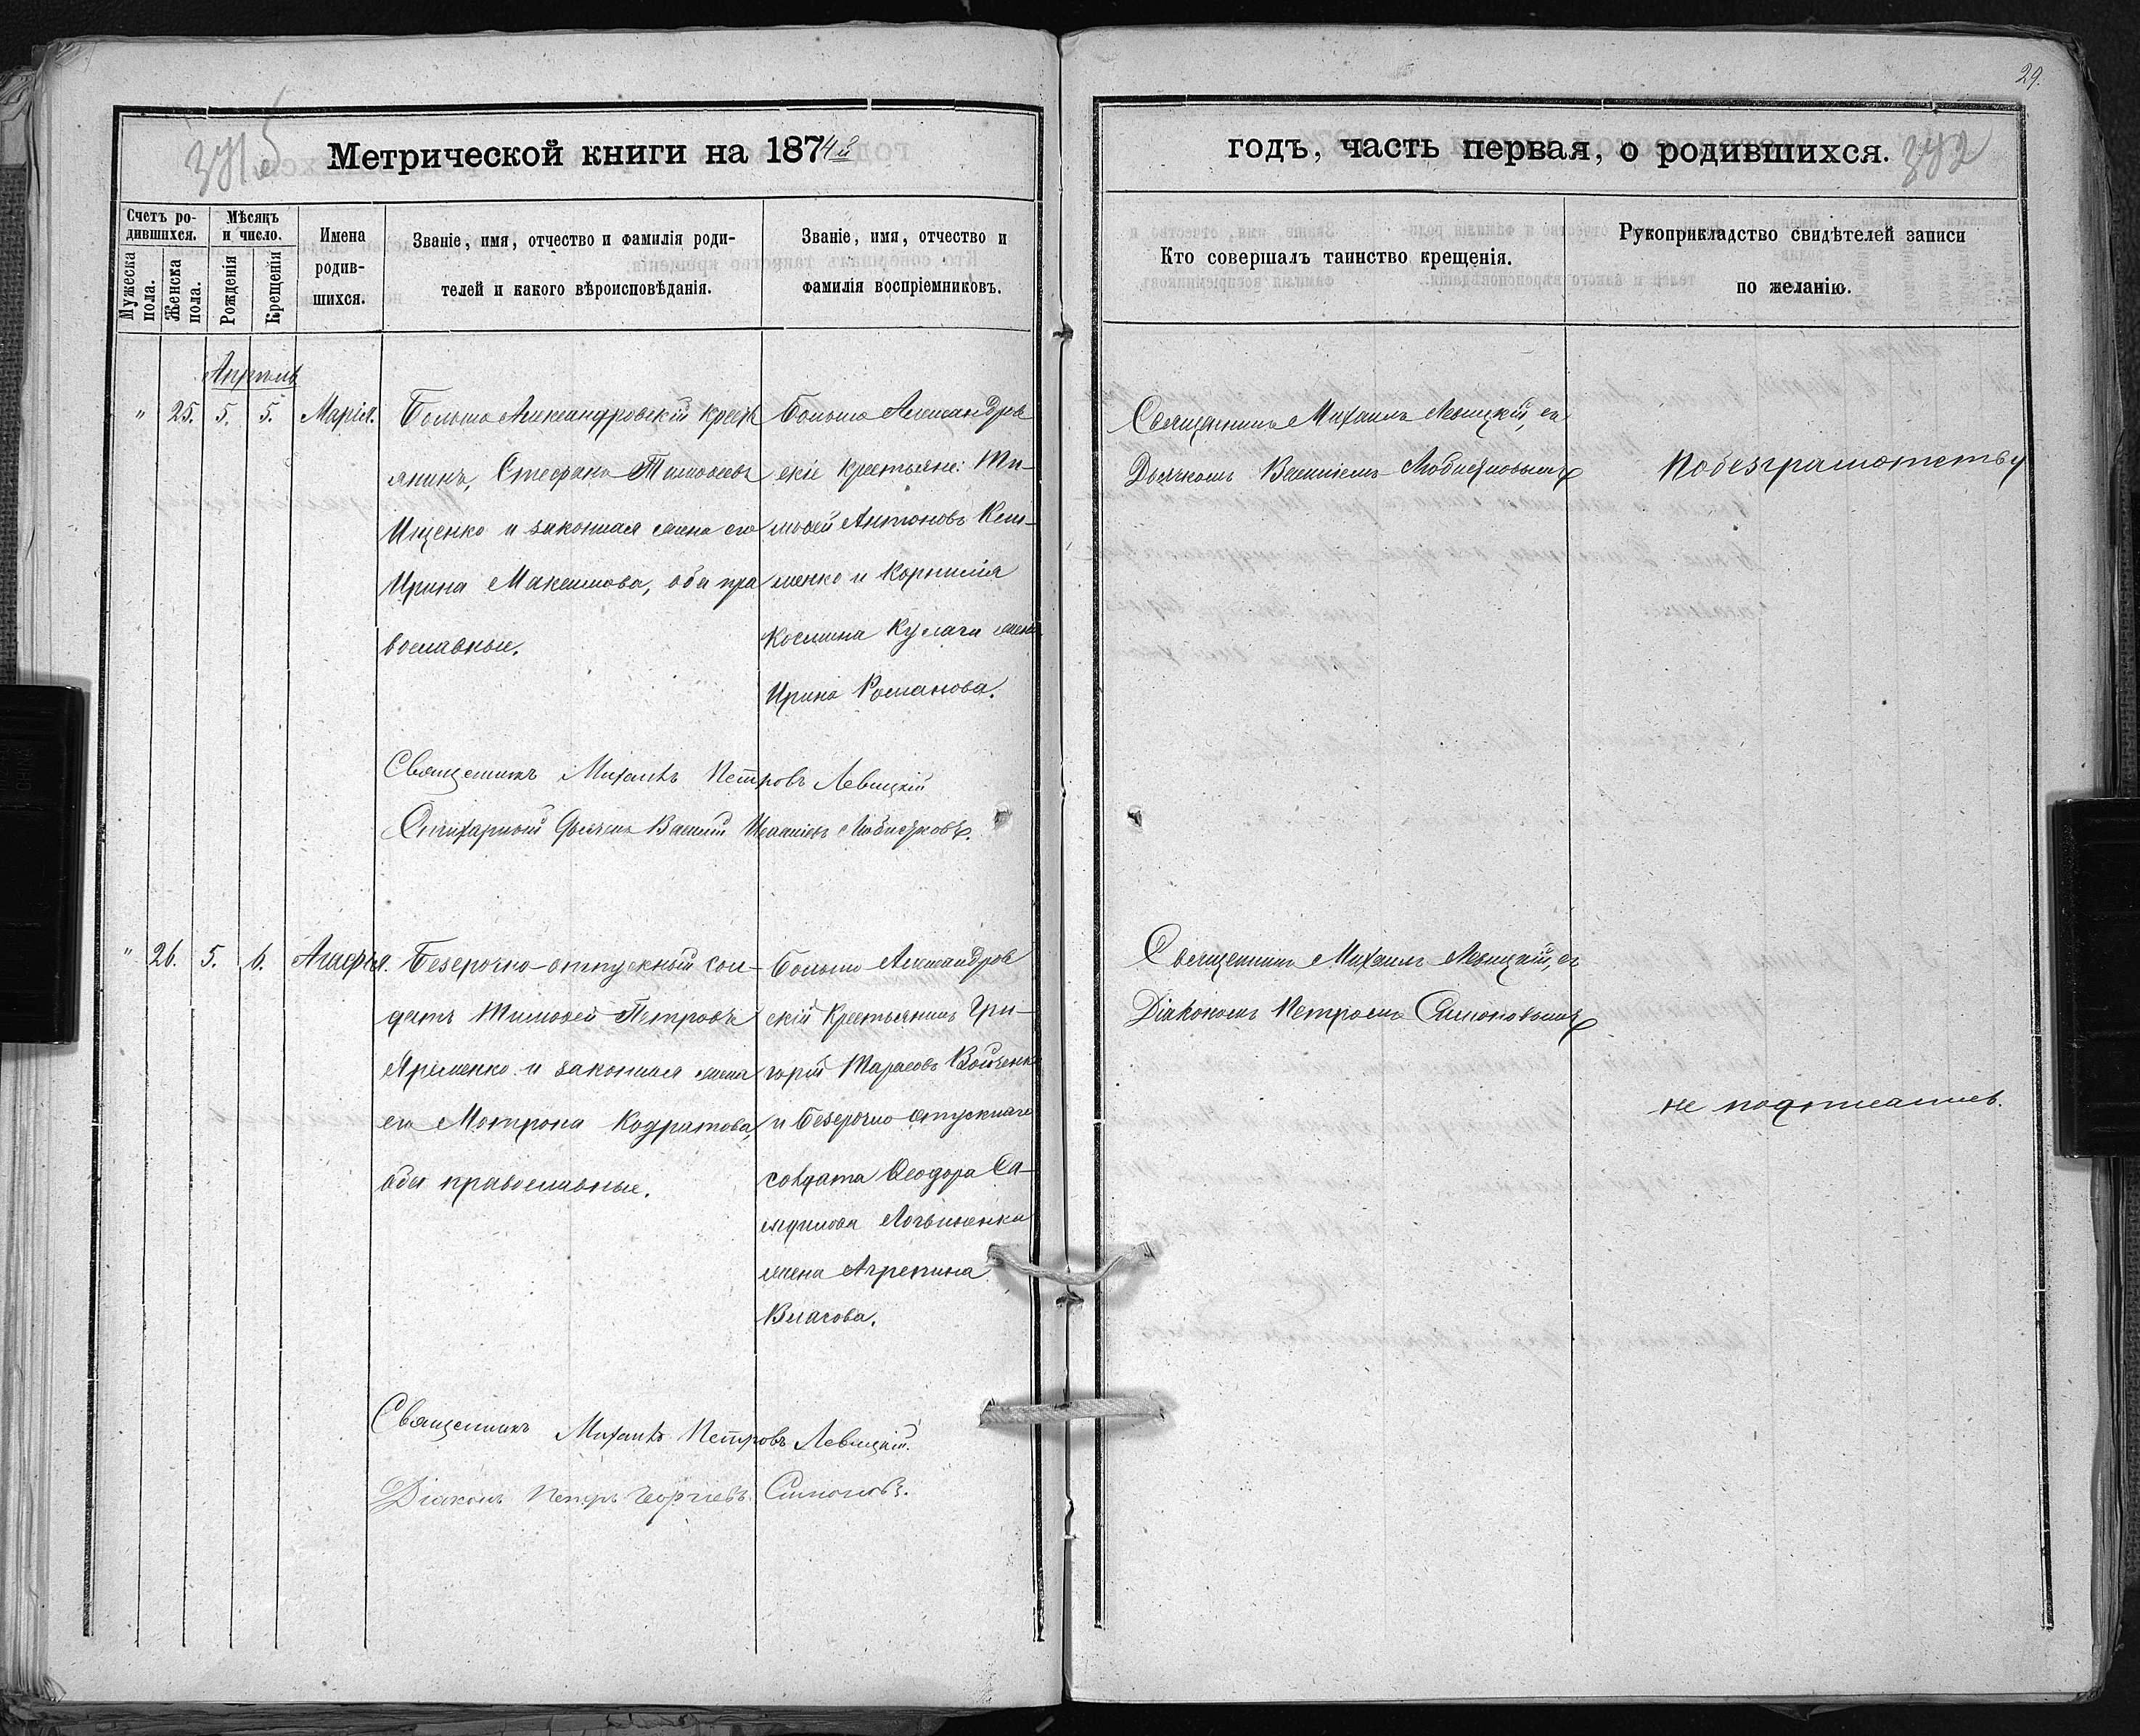 29.
Метрической книги на 1874й
годъ, часть первая, о родившихся.
372
Счетъ ро-
дившихся.
Мужеска
пола.
Женска
пола.
Мѣсяцъ
и число.
Рожденія
Крещенія
Имена
родив-
шихся.
Званіе, имя, отчество и фамилія роди-
телей и какого вѣроисповѣданія.
Званіе, имя, отчество и
фамилія воспріемниковъ.
Кто совершалъ таинство крещенія.
Рукоприкладство свидѣтелей записи
по желанію.
Апрѣль
" 25. 5. 5. Марія.
Больше Александровскій крест
янинъ, Стефанъ Тимовеевъ
Ищенко и законная жена его
Ирина Максимова, оба пра
вославные.
Больше Александров
скіе крестьяне: Ти-
мовей Антоновъ
менко и Корнилія
Космина жена
Ирина Романова.
Священникъ Михаилъ Левицкій, съ
Дьячкомъ Василіемъ Любистковымъ
По безграмотству
Священникъ Михаилъ Петровъ Левицкій
Стихарный Дьячекъ Василій Любистковъ.
" 26. 5. 6. Агафія.
Безсрочно-отпускный сол-
датъ Тимовей Петровъ
Яременко и законная жена
его Мотрона Кодратова,
оба православные.
Больше Александров
скій Крестьянинъ Гри-
горій Тарасовъ Войченко
и безсрочно отпускнаго
солдата Ѳеодора Са-
мужена Агрепина
Власова.
Священникъ Михаилъ Левицкій, съ
Діакономъ Петромъ Симоновымъ
не подписались.
Священникъ Михаилъ Петровъ Левицкій.
Діаконъ Петръ Георгіевъ Симоновъ.